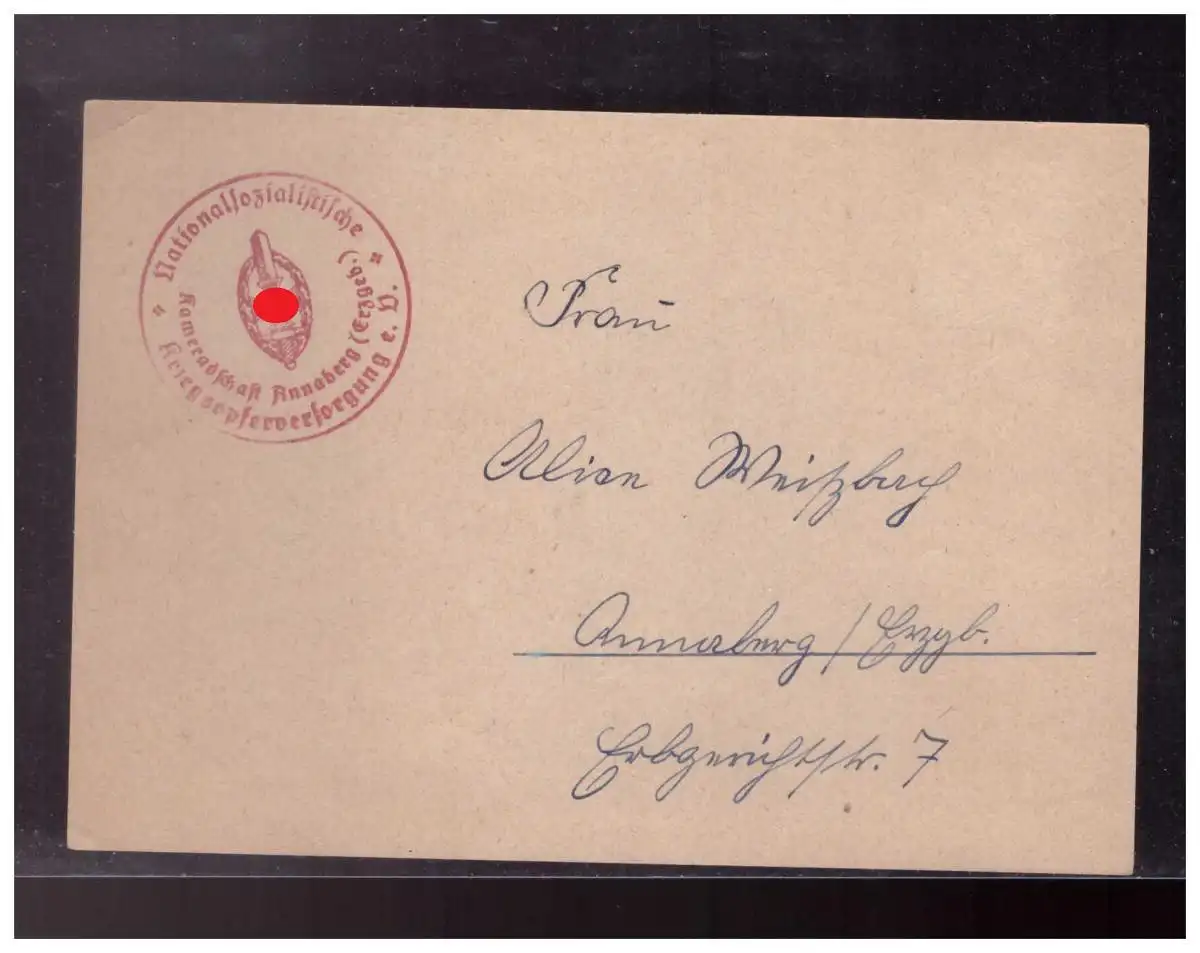 Nationalsozialistische
Kriegsopferversorgung e. V.
Kameradschaft Annaberg (Erzgeb.)
Frau
Weißbach
Annaberg / Erzgb.
Erbgerichtstr. 7